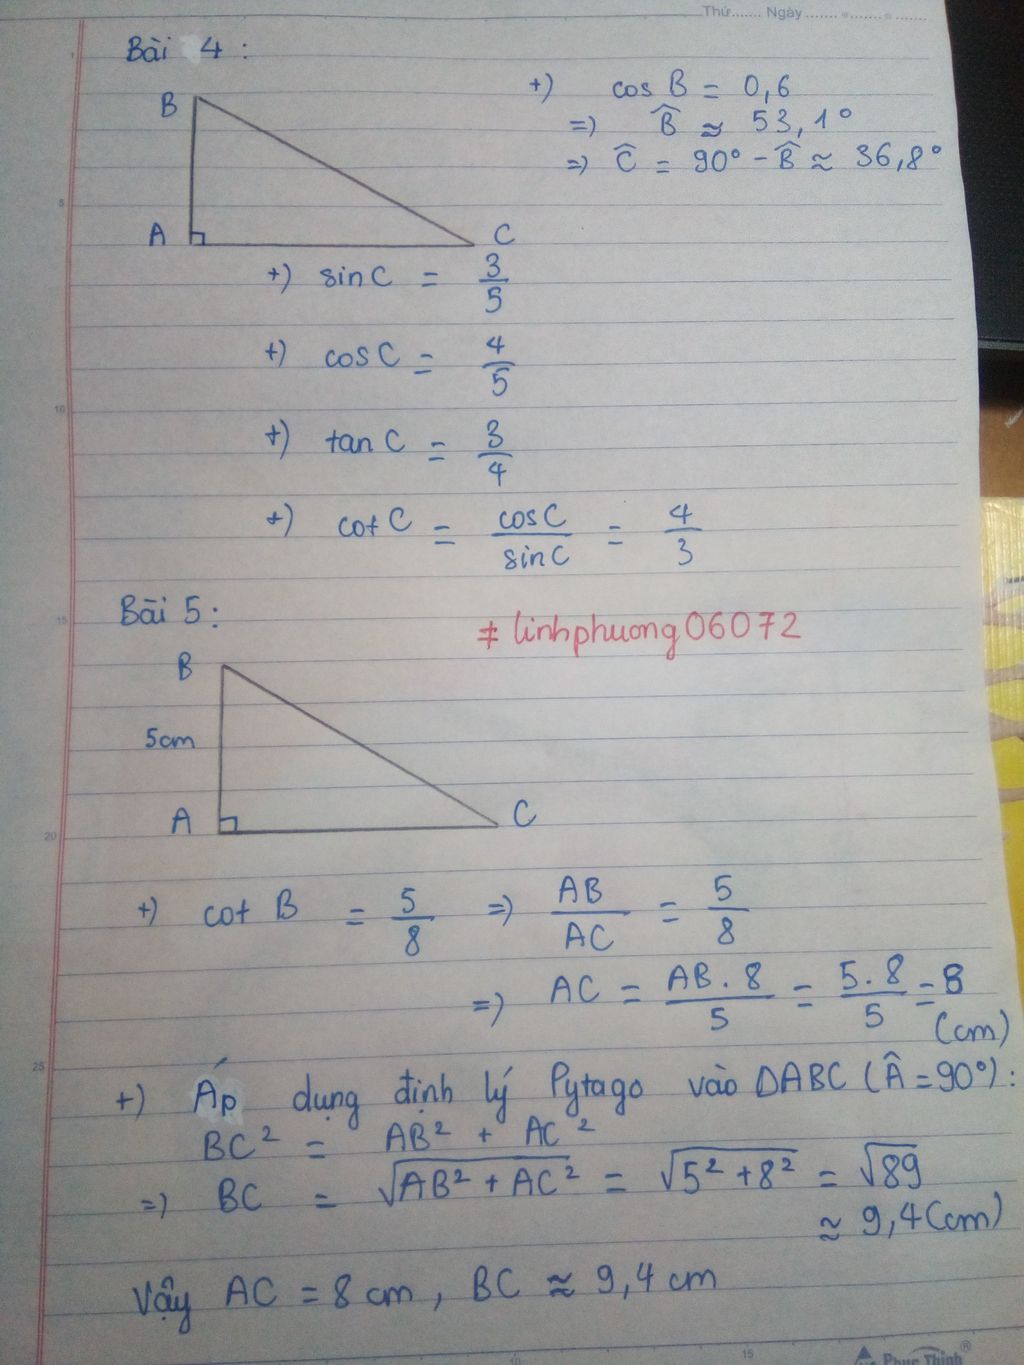 Thứ....... Ngày.......................
Bài 4:
B
A
C
+) cos B = 0,6
=) B̂ ≈ 53,1°
=) Ĉ = 90° - B̂ ≈ 36,8°
+) sin C = 3/5
+) cos C = 4/5
+) tan C = 3/4
+) cot C = cosC/sinC = 4/3
5
10
15
20
25
Bài 5:
# linhphuong06072
B
5cm
A
C
+) cot B = 5/8 =) AB/AC = 5/8
=) AC = AB.8/5 = 5.8/5 = 8
(cm)
+) Áp dụng định lý Pytago vào ΔABC (Â = 90°):
BC² = AB² + AC²
=) BC = √(AB² + AC²) = √(5² + 8²) = √89
≈ 9,4 (cm)
Vậy AC = 8 cm, BC ≈ 9,4 cm
10
15
Phuc Thinh®